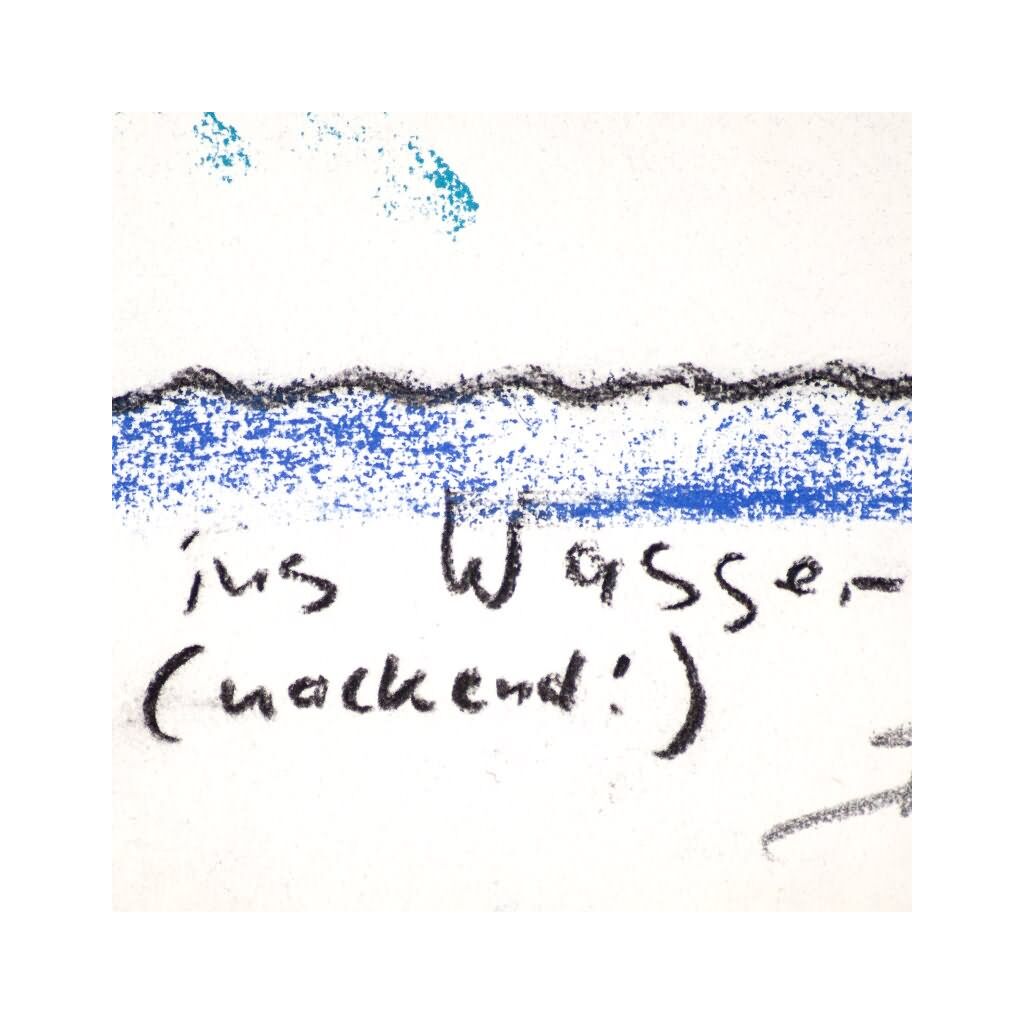 ins Wasser
(nackend!)